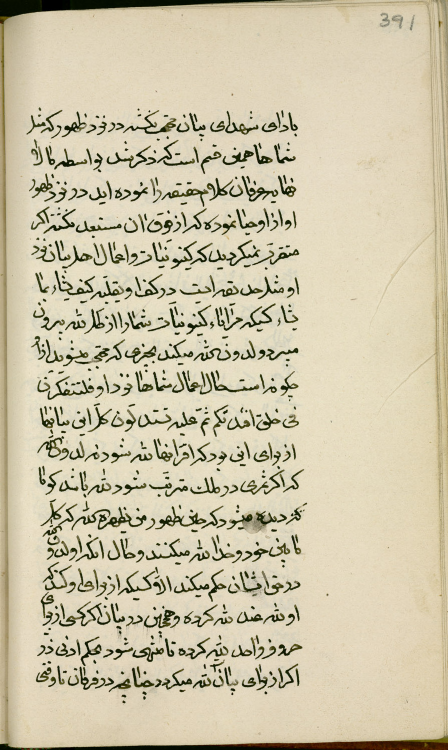 391
با ادلای شهدای بیان محتجب نگشته در نزد ظهور که مثل
شماها همین قسم است که ذکر شد بواسطه بالا
نهایه عرفان کلام حقیقه را نموده اید در نزد ظهور
او از او حیا نموده که از فوق ان مستبعد نگشته اگر
متقرب نمیگردید که کینونیات و اعمال اهل بیان نزد
او مثل حلقه ایست در کف او یقلبه کیف یشاء بما
یشاء کینونیات شما را از ظل لله بیرون
میبرد و لدون لله میکند بچیزی که محتجب میشوید از او
چگونه است حال اعمال شماها نزد او فلتتفکرن
فی خلق افئدتکم ثم علیه تستدلون کل این بیانها
از برای این بود که اقرانها لله شود نه لدون الله
که اگر ثمری در ملک مترتب شود لله باشد کو تا
دیده میشود که حین ظهور من یظهره الله کل
ما بین خود و خدا لله میکنند و حال آنکه او لدون
در حق ایشان حکم میکند الا کسیکه از برای او کند که
او لله عند لله کرده و همچنین در بیان اگر کسی از برای
حروف واحد لله کرده تا منتهی شود بحکم ادنی ذر
اگر از برای بیان لله میکردد چنانچه در فرقان تا وقتی